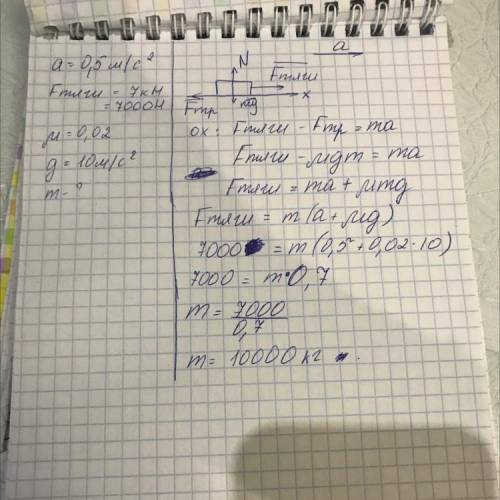 a = 0,5 м/с²
Fтяги = 7кН
= 7000Н
μ = 0,02
g = 10м/с²
m - ?
a
N
Fтяги
Fтр
mg
x
ox: Fтяги - Fтр = ma
Fтяги - μgm = ma
Fтяги = ma + μmg
Fтяги = m(a + μg)
7000 = m(0,5 + 0,02·10)
7000 = m·0,7
m = 7000/0,7
m = 10000 кг